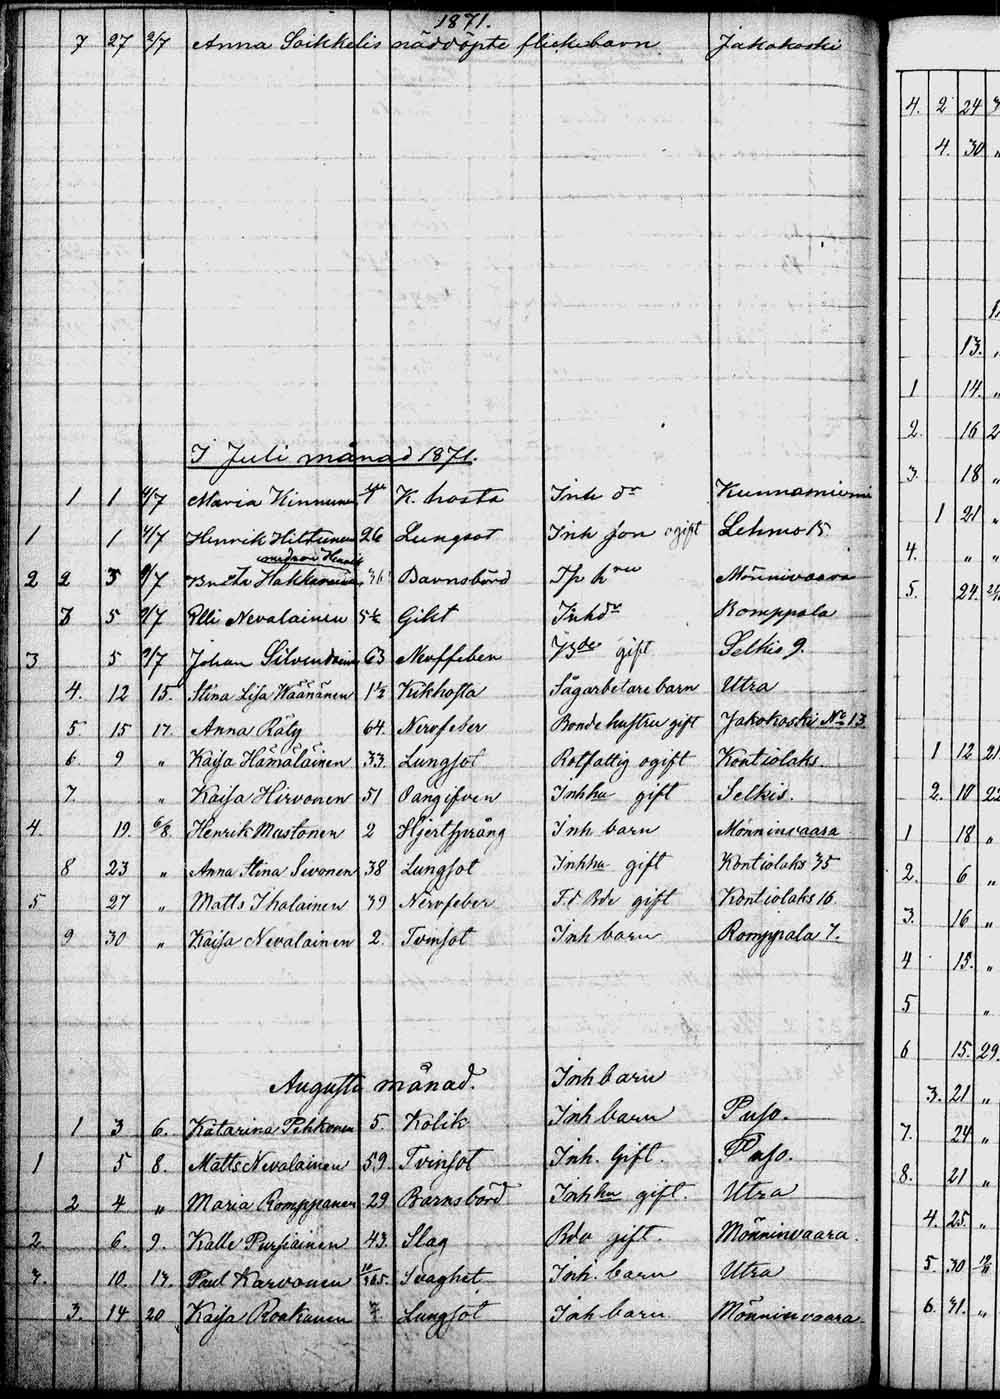 1871.
7 27 2/7 Anna Soikkelis nöddöpte flickebarn Jakokoski
I Juli månad 1871.
1 1 4/7 Maria Kinnunen K. hosta Inh dr Kunnasniemi
1 1 4/7 Henrik Hiltunen 26 Lungsot Inh son ogift Lehmo 15.
2 2 3 9/7 Hakkarainen 36 Barnsbörd Mönnivaara
3 5 9/7 Elli Nevalainen 5½ Gikt Inh dr Romppala
3 5 9/7 Johan Silvendoinen 63 Nervfeber Bde gift Selkis 9.
4. 12 15. Stina Lisa Väänänen 1½ Kikhosta Sågarbetare barn Utra
5. 15 17. Anna Räty 64. Nervfeber Bonde hustru gift Jakokoski No 13
6 9 " Kaisa Hämäläinen 33. Lungsot Rotfattig ogift Kontiolaks
7. " Kaisa Hirvonen 51 Oangifven Inh hu gift Selkis.
4. 19. 6/8 Henrik Mustonen 2 Hjertsprång Inh barn Mönninvaara
8 23 " Anna Stina Sivonen 38 Lungsot Inh hu gift Kontiolaks 35
5 27 " Matts Ihalainen 39 Nervfeber F.d Bde gift Kontiolaks 16
9 30 " Kaisa Nevalainen 2. Tvinsot Inh barn Romppala 7.
Augusta månad. Inh barn
1 3 6. Katarina Pehkonen 5. Kolik Inh barn Puso.
1 5 8. Matts Nevalainen 59. Tvinsot Inh. Gift. Puso.
2 4 " Maria Romppanen 29 Barnsbörd Inh hu gift. Utra
2. 6. 9. Kalle Pursiainen 43. Slag Bde gift. Mönninvaara.
3. 10. 13. Paul Karvonen 10/365. Svaghet Inh. barn Utra
3. 14 20 Kaisa Rouvinen Lungsot Inh barn Mönninvaara.
4. 2 24
4. 30 "
13. "
1 14. "
2. 16 2
3. 18 "
1 21 "
4. " "
5. 24.
1 12 21
2. 10 22
1 18 "
2. 6 "
3. 16 "
4 15. "
5 "
6 15. 29.
3. 21 "
7. 24 "
8. 21 "
4. 25. "
5. 30
6. 31. "